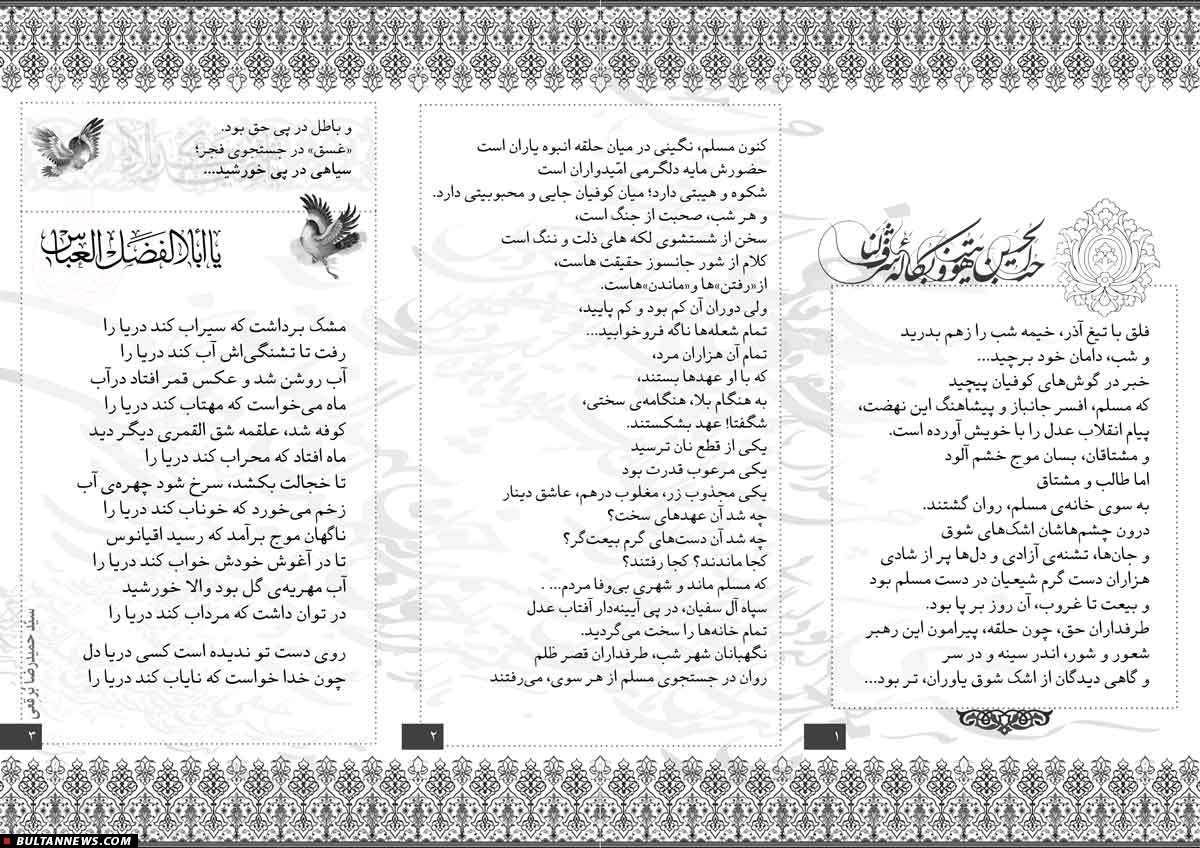 فلق با تیغ آذر، خیمه شب را زهم بدرید
و شب، دامان خود برچید...
خبر در گوش‌های کوفیان پیچید
که مسلم، افسر جانباز و پیشاهنگ این نهضت،
پیام انقلاب عدل را با خویش آورده است.
و مشتاقان، بسان موج خشم آلود
اما طالب و مشتاق
به سوی خانه‌ی مسلم، روان گشتند.
درون چشم‌هاشان اشک‌های شوق
و جان‌ها، تشنه‌ی آزادی و دل‌ها پر از شادی
هزاران دست گرم شیعیان در دست مسلم بود
و بیعت تا غروب، آن روز بر پا بود.
طرفداران حق، چون حلقه، پیرامون این رهبر
شعور و شور، اندر سینه و در سر
و گاهی دیدگان از اشک شوق یاوران، تر بود...
۱
کنون مسلم، نگینی در میان حلقه انبوه یاران است
حضورش مایه دلگرمی امّیدواران است
شکوه و هیبتی دارد؛ میان کوفیان جایی و محبوبیتی دارد.
و هر شب، صحبت از جنگ است،
سخن از شستشوی لکه های ذلت و ننگ است
کلام از شور جانسوز حقیقت هاست،
از«رفتن»ها و«ماندن»هاست.
ولی دوران آن کم بود و کم پایید،
تمام شعله‌ها ناگه فروخوابید...
تمام آن هزاران مرد،
که با او عهدها بستند،
به هنگام بلا، هنگامه‌ی سختی،
شگفتا! عهد بشکستند.
یکی از قطع نان ترسید
یکی مرعوب قدرت بود
یکی مجذوب زر، مغلوب درهم، عاشق دینار
چه شد آن عهدهای سخت؟
چه شد آن دست‌های گرم بیعت‌گر؟
کجا ماندند؟ کجا رفتند؟
که مسلم ماند و شهری بی‌وفا مردم... .
سپاه آل سفیان، در پی آیینه‌دار آفتاب عدل
تمام خانه‌ها را سخت می‌گردید.
نگهبانان شهر شب، طرفداران قصر ظلم
روان در جستجوی مسلم از هر سوی، می‌رفتند
۲
و باطل در پی حق بود.
«غسق» در جستجوی فجر؛
سیاهی در پی خورشید...
یا اباالفضل العباس
مشک برداشت که سیراب کند دریا را
رفت تا تشنگی‌اش آب کند دریا را
آب روشن شد و عکس قمر افتاد درآب
ماه می‌خواست که مهتاب کند دریا را
کوفه شد، علقمه شق القمری دیگر دید
ماه افتاد که محراب کند دریا را
تا خجالت بکشد، سرخ شود چهره‌ی آب
زخم می‌خورد که خوناب کند دریا را
ناگهان موج برآمد که رسید اقیانوس
تا در آغوش خودش خواب کند دریا را
آب مهریه‌ی گل بود والا خورشید
در توان داشت که مرداب کند دریا را
روی دست تو ندیده است کسی دریا دل
چون خدا خواست که نایاب کند دریا را
سیّد حمیدرضا بُرقعی
۳
BULTANNEWS.COM